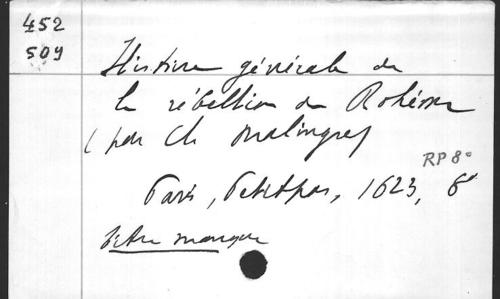 452
509
Histoire générale de
la rébellion de Bohême
(par Cl. Malingre)
RP 8°
Paris, Petitpas, 1623, 8°
titre manque